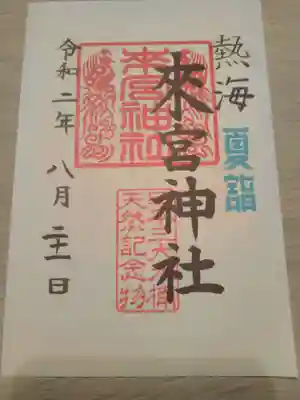 熱海
夏詣
來宮神社
來宮神社
天然記念物
令和二年 八月二十一日